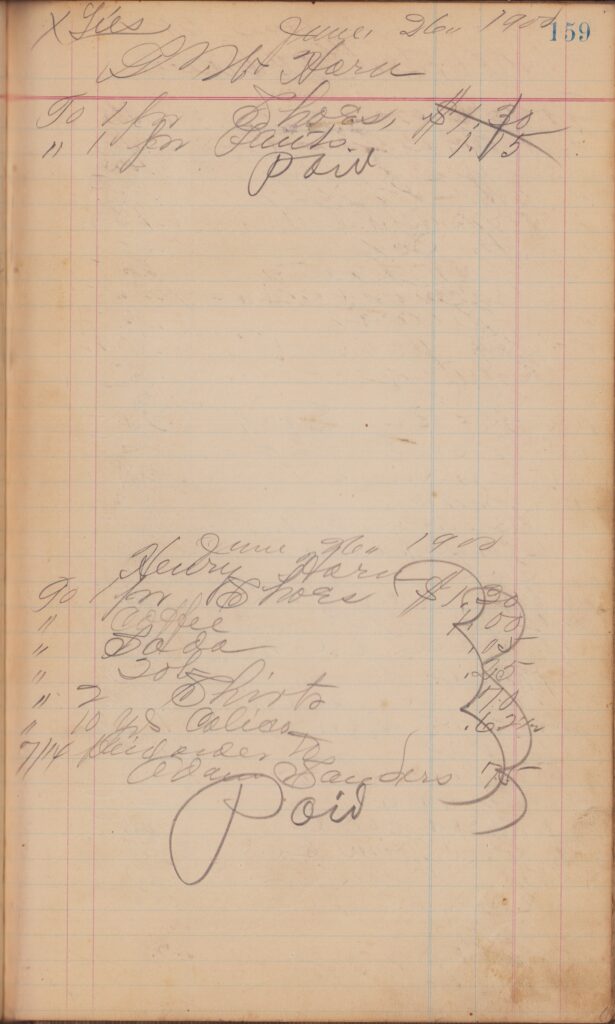 X Ties June, 26" 1902 159
Horn
To 1 pr Shoes, $1.30
" 1 pr Pants. 1.15
Paid
June 26" 1902
Henry Horn
To 1 pr Shoes $1.30
" Coffee 1.00
" Soda .05
" Tob
" 2 Shirts .70
" 10 yds Calico
7/14 order To
Adam Sanders 75
Paid